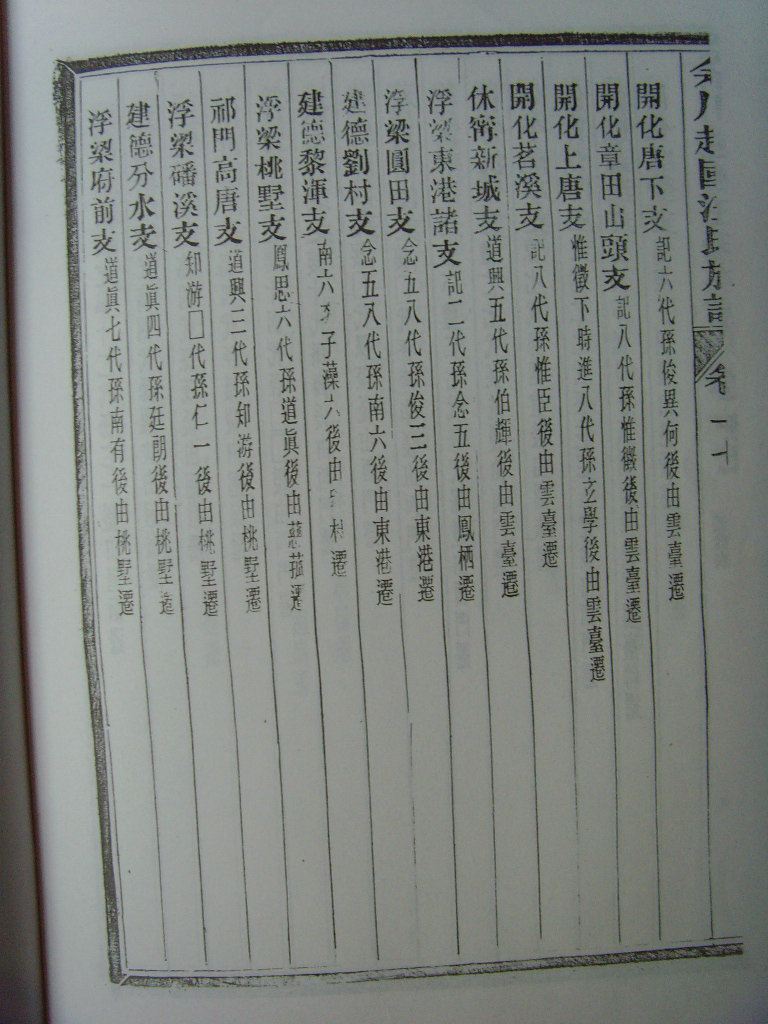 越國汪氏族譜 卷
開化唐下支 記六代孫俊異何後由雲臺遷
開化章田山頭支 記八代孫惟徽後由雲臺遷
開化上唐支 惟徽下時進八代孫立學後由雲臺遷
開化茗溪支 記八代孫惟臣後由雲臺遷
休甯新城支 道興五代孫伯輝後由雲臺遷
浮梁東港諸支 記二代孫念五後由鳳栖遷
浮梁圓田支 念五八代孫俊三後由東港遷
建德劉村支 念五八代孫南六後由東港遷
建德黎渾支 南六 子藻六後由 村遷
浮梁桃墅支 鳳思六代孫道眞後由 遷
祁門高唐支 道興三代孫知游後由桃墅遷
浮梁磻溪支 知游囗代孫仁一後由桃墅遷
建德分水支 道眞四代孫廷朗後由桃墅遷
浮梁府前支 道眞七代孫南有後由桃墅遷